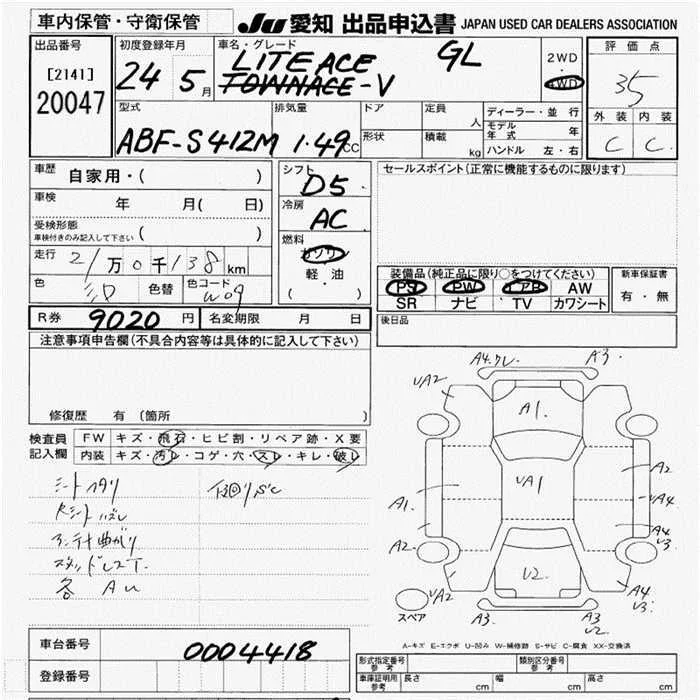 車内保管・守衛保管 JU 愛知 出品申込書 JAPAN USED CAR DEALERS ASSOCIATION
出品番号 初度登録年月 車名・グレード 評価点
[2141] 24 5月 LITE ACE GL 2WD
20047 TOWNACE-V 4WD 35
型式 排気量 ドア 定員 人 ディーラー・並行 外装 内装
モデル年式 年
ABF-S412M 1.49cc 形状 積載 kg ハンドル 左・右 C C
車歴 自家用・( ) シフト D5 セールスポイント(正常に機能するものに限ります)
車検 年 月( 日) 冷房 AC
受検形態
車検付きのみ記入して下さい ( )
走行 21万0千138km 燃料 ガソリン
軽・油
( )
色 色替 色コード W09
装備品(純正品に限り○をつけてください) 新車保証書
PS PW AB AW 有・無
SR ナビ TV カワシート
R券 9020円 名変期限 月 日 後日品
注意事項申告欄(不具合内容等は具体的に記入して下さい)
修復歴 有(箇所 )
検査員 FW キズ・飛石・ヒビ割・リペア跡・X要
記入欄 内装 キズ・汚レ・コゲ・穴・スレ・キレ・破レ
シートヘタリ 下回りSC
アンテナ曲がり
スタッドレスT.
各 AU
A4.ワレ A3.
UA2 A1.
UA1 A2
A1. UA4
A2. A4 U3.
U2
UA2 A4 U3.
スペア A3 A3 U2
A-キズ E-エクボ U-凹み W-補修跡 S-サビ C-腐食 XX-交換済
車台番号 0004418
登録番号
形式指定番号 参考 類別区分番号 参考
車庫証明用 参考 長さ cm 幅 cm 高さ cm